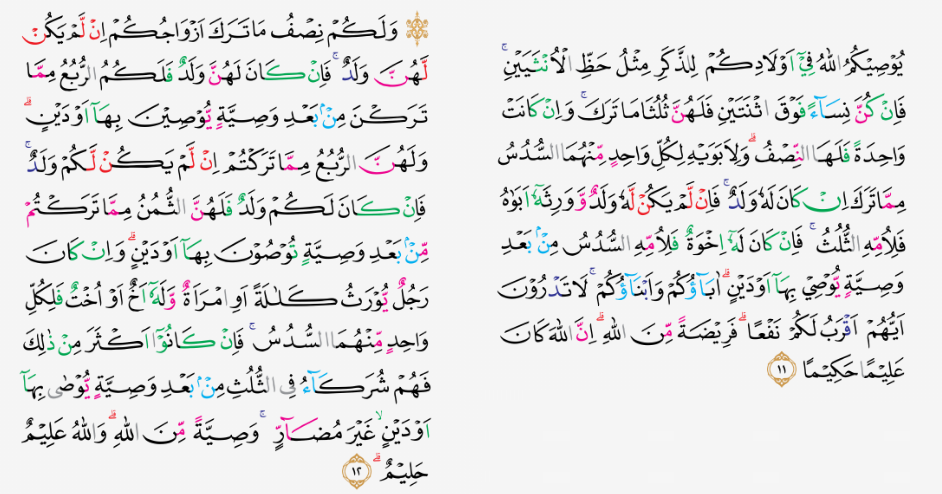 يُوْصِيْكُمُ اللّٰهُ فِيْٓ اَوْلَادِكُمْ لِلذَّكَرِ مِثْلُ حَظِّ الْاُنْثَيَيْنِ ۚ
فَاِنْ كُنَّ نِسَاۤءً فَوْقَ اثْنَتَيْنِ فَلَهُنَّ ثُلُثَا مَا تَرَكَ ۚ وَاِنْ كَانَتْ
وَاحِدَةً فَلَهَا النِّصْفُ ۗ وَلِاَبَوَيْهِ لِكُلِّ وَاحِدٍ مِّنْهُمَا السُّدُسُ
مِمَّا تَرَكَ اِنْ كَانَ لَهٗ وَلَدٌ ۚ فَاِنْ لَّمْ يَكُنْ لَّهٗ وَلَدٌ وَّوَرِثَهٗٓ اَبَوٰهُ
فَلِاُمِّهِ الثُّلُثُ ۚ فَاِنْ كَانَ لَهٗٓ اِخْوَةٌ فَلِاُمِّهِ السُّدُسُ مِنْۢ بَعْدِ
وَصِيَّةٍ يُّوْصِيْ بِهَآ اَوْ دَيْنٍ ۗ اٰبَاۤؤُكُمْ وَاَبْنَاۤؤُكُمْ ۚ لَا تَدْرُوْنَ
اَيُّهُمْ اَقْرَبُ لَكُمْ نَفْعًا ۗ فَرِيْضَةً مِّنَ اللّٰهِ ۗ اِنَّ اللّٰهَ كَانَ
عَلِيْمًا حَكِيْمًا ١١
۞ وَلَكُمْ نِصْفُ مَا تَرَكَ اَزْوَاجُكُمْ اِنْ لَّمْ يَكُنْ
لَّهُنَّ وَلَدٌ ۚ فَاِنْ كَانَ لَهُنَّ وَلَدٌ فَلَكُمُ الرُّبُعُ مِمَّا
تَرَكْنَ مِنْۢ بَعْدِ وَصِيَّةٍ يُّوْصِيْنَ بِهَآ اَوْ دَيْنٍ ۗ
وَلَهُنَّ الرُّبُعُ مِمَّا تَرَكْتُمْ اِنْ لَّمْ يَكُنْ لَّكُمْ وَلَدٌ ۚ
فَاِنْ كَانَ لَكُمْ وَلَدٌ فَلَهُنَّ الثُّمُنُ مِمَّا تَرَكْتُمْ
مِّنْۢ بَعْدِ وَصِيَّةٍ تُوْصُوْنَ بِهَآ اَوْ دَيْنٍ ۗ وَاِنْ كَانَ
رَجُلٌ يُّوْرَثُ كَلٰلَةً اَوِ امْرَاَةٌ وَّلَهٗٓ اَخٌ اَوْ اُخْتٌ فَلِكُلِّ
وَاحِدٍ مِّنْهُمَا السُّدُسُ ۚ فَاِنْ كَانُوْٓا اَكْثَرَ مِنْ ذٰلِكَ
فَهُمْ شُرَكَاۤءُ فِى الثُّلُثِ مِنْۢ بَعْدِ وَصِيَّةٍ يُّوْصٰى بِهَآ
اَوْ دَيْنٍ ۙ غَيْرَ مُضَاۤرٍّ ۚ وَصِيَّةً مِّنَ اللّٰهِ ۗ وَاللّٰهُ عَلِيْمٌ
حَلِيْمٌ ۗ ١٢